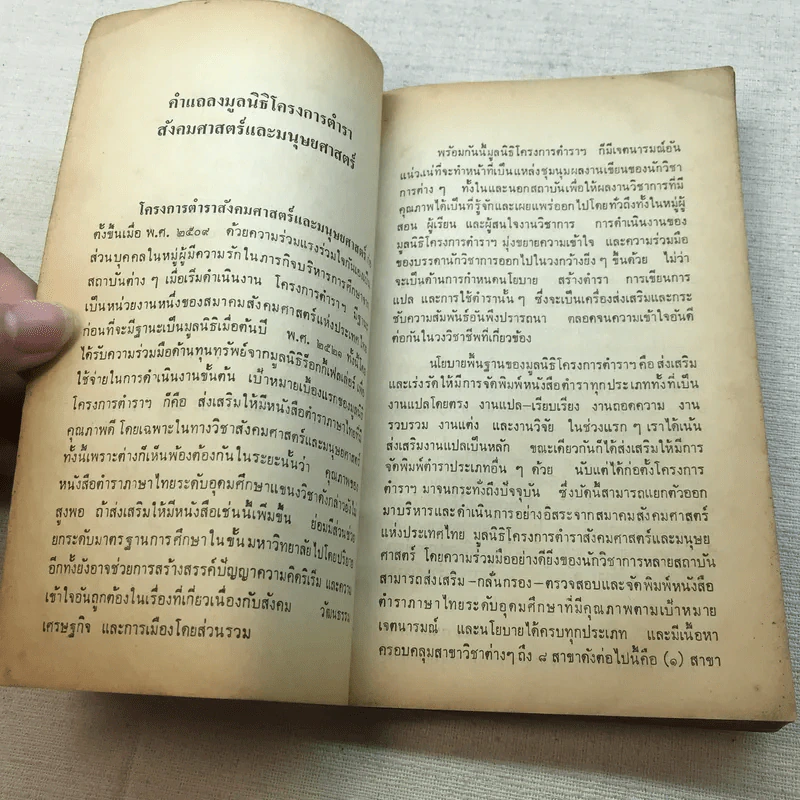 คำแถลงมูลนิธิโครงการตำรา
สังคมศาสตร์และมนุษยศาสตร์
โครงการตำราสังคมศาสตร์และมนุษยศาสตร์
ตั้งขึ้นเมื่อ พ.ศ. ๒๕๐๙ ด้วยความร่วมแรงร่วมใจกัน
ส่วนบุคคลในหมู่ผู้มีความรักในภารกิจบริหารการศึกษา
สถาบันต่าง ๆ เมื่อเริ่มดำเนินงาน โครงการตำราฯ มีฐานะ
เป็นหน่วยงานหนึ่งของสมาคมสังคมศาสตร์แห่งประเทศไทย
ก่อนที่จะมีฐานะเป็นมูลนิธิเมื่อต้นปี พ.ศ. ๒๕๒๑ ทั้งนี้โดย
ได้รับความร่วมมือด้านทุนทรัพย์จากมูลนิธิร็อกกี้เฟลเล่อร์ เพื่อ
ใช้จ่ายในการดำเนินงานขั้นต้น เป้าหมายเบื้องแรกของมูลนิธิ
โครงการตำราฯ ก็คือ ส่งเสริมให้มีหนังสือตำราภาษาไทยที่มี
คุณภาพดี โดยเฉพาะในทางวิชาสังคมศาสตร์และมนุษยศาสตร์
ทั้งนี้เพราะต่างก็เห็นพ้องต้องกันในระยะนั้นว่า คุณภาพของ
หนังสือตำราภาษาไทยระดับอุดมศึกษาแขนงวิชาดังกล่าวยังไม่
สูงพอ ถ้าส่งเสริมให้มีหนังสือเช่นนี้เพิ่มขึ้น ย่อมมีส่วนช่วย
ยกระดับมาตรฐานการศึกษาในขั้นมหาวิทยาลัยไปโดยปริยาย
อีกทั้งยังอาจช่วยการสร้างสรรค์ปัญญาความคิดริเริ่ม และความ
เข้าใจอันถูกต้องในเรื่องที่เกี่ยวเนื่องกับสังคม วัฒนธรรม
เศรษฐกิจ และการเมืองโดยส่วนรวม
พร้อมกันนี้มูลนิธิโครงการตำราฯ ก็มีเจตนารมณ์อัน
แน่วแน่ที่จะทำหน้าที่เป็นแหล่งชุมนุมผลงานเขียนของนักวิชา
การต่าง ๆ ทั้งในและนอกสถาบันเพื่อให้ผลงานวิชาการที่มี
คุณภาพได้เป็นที่รู้จักและเผยแพร่ออกไปโดยทั่วถึงทั้งในหมู่ผู้
สอน ผู้เรียน และผู้สนใจงานวิชาการ การดำเนินงานของ
มูลนิธิโครงการตำราฯ มุ่งขยายความเข้าใจ และความร่วมมือ
ของบรรดานักวิชาการออกไปในวงกว้างยิ่ง ๆ ขึ้นด้วย ไม่ว่า
จะเป็นด้านการกำหนดนโยบาย สร้างตำรา การเขียนการ
แปล และการใช้ตำรานั้น ๆ ซึ่งจะเป็นเครื่องส่งเสริมและกระ
ชับความสัมพันธ์อันพึงปรารถนา ตลอดจนความเข้าใจอันดี
ต่อกันในวงวิชาชีพที่เกี่ยวข้อง
นโยบายพื้นฐานของมูลนิธิโครงการตำราฯ คือ ส่งเสริม
และเร่งรัดให้มีการจัดพิมพ์หนังสือตำราทุกประเภททั้งที่เป็น
งานแปลโดยตรง งานแปล-เรียบเรียง งานถอดความ งาน
รวบรวม งานแต่ง และงานวิจัย ในช่วงแรก ๆ เราได้เน้น
ส่งเสริมงานแปลเป็นหลัก ขณะเดียวกันก็ได้ส่งเสริมให้มีการ
จัดพิมพ์ตำราประเภทอื่น ๆ ด้วย นับแต่ได้ก่อตั้งโครงการ
ตำราฯ มาจนกระทั่งถึงปัจจุบัน ซึ่งบัดนี้สามารถแยกตัวออก
มาบริหารและดำเนินการอย่างอิสระจากสมาคมสังคมศาสตร์
แห่งประเทศไทย มูลนิธิโครงการตำราสังคมศาสตร์และมนุษย
ศาสตร์ โดยความร่วมมืออย่างดียิ่งของนักวิชาการหลายสถาบัน
สามารถส่งเสริม-กลั่นกรอง-ตรวจสอบและจัดพิมพ์หนังสือ
ตำราภาษาไทยระดับอุดมศึกษาที่มีคุณภาพตามเป้าหมาย
เจตนารมณ์ และนโยบายได้ครบทุกประเภท และมีเนื้อหา
ครอบคลุมสาขาวิชาต่างๆ ถึง ๘ สาขาดังต่อไปนี้คือ (๑) สาขา